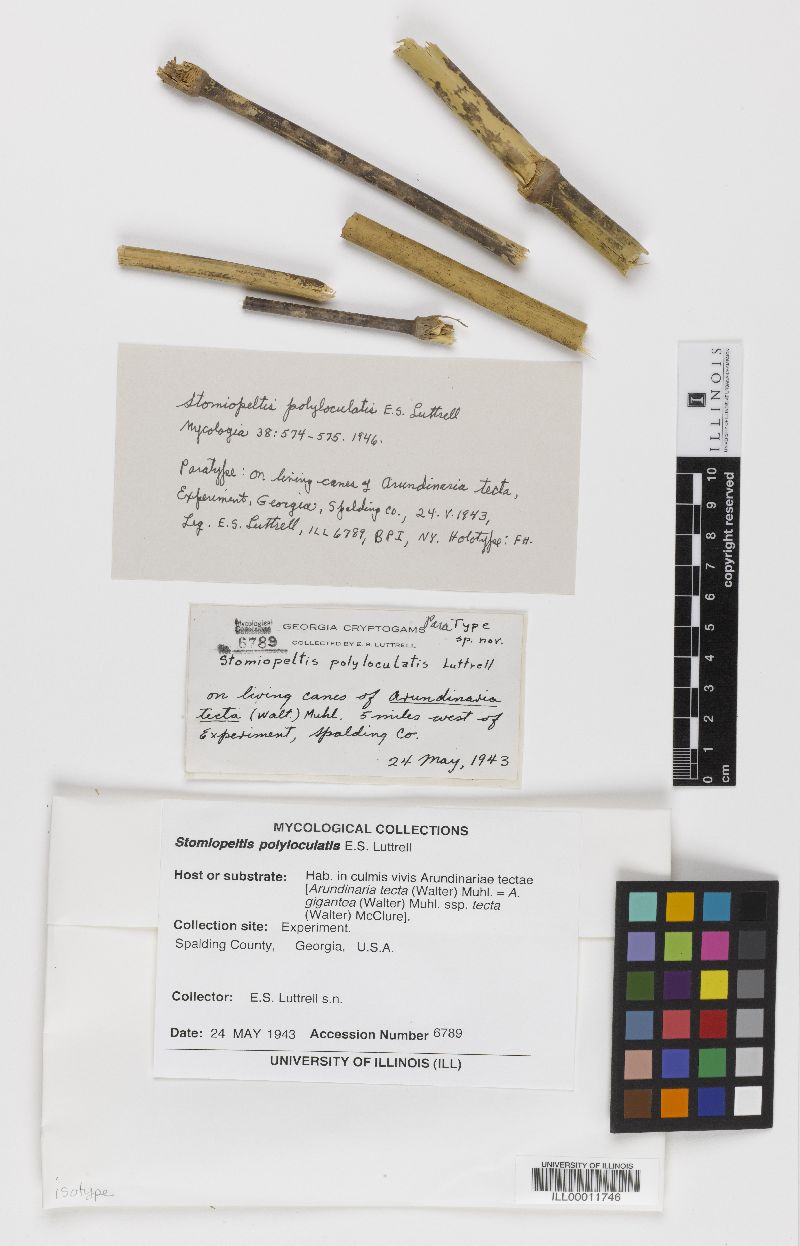 Stomiopeltis polyloculatis E.S. Luttrell
Mycologia 38:574-575. 1946.
Paratype: on living canes of Arundinaria tecta,
Experiment, Georgia, Spalding co., 24.V.1943,
Leg. E.S. Luttrell, ILL 6789, BPI, NY. Holotype: FH.
ILLINOIS
10
9
8
7
6
5
4
3
2
1
0
cm
copyright reserved
Mycological
Collections
6789
GEORGIA CRYPTOGAMS
ParaType
sp. nov.
COLLECTED BY E. S. LUTTRELL
Stomiopeltis polyloculatis Luttrell
on living canes of Arundinaria
tecta (Walt.) Muhl. 5 miles west of
Experiment, Spalding Co.
24 May, 1943
MYCOLOGICAL COLLECTIONS
Stomiopeltis polyloculatis E.S. Luttrell
Host or substrate: Hab. in culmis vivis Arundinariae tectae
[Arundinaria tecta (Walter) Muhl. = A.
gigantea (Walter) Muhl. ssp. tecta
(Walter) McClure].
Collection site: Experiment.
Spalding County, Georgia, U.S.A.
Collector: E.S. Luttrell s.n.
Date: 24 MAY 1943 Accession Number 6789
UNIVERSITY OF ILLINOIS (ILL)
isotype
UNIVERSITY OF ILLINOIS
ILL00011746